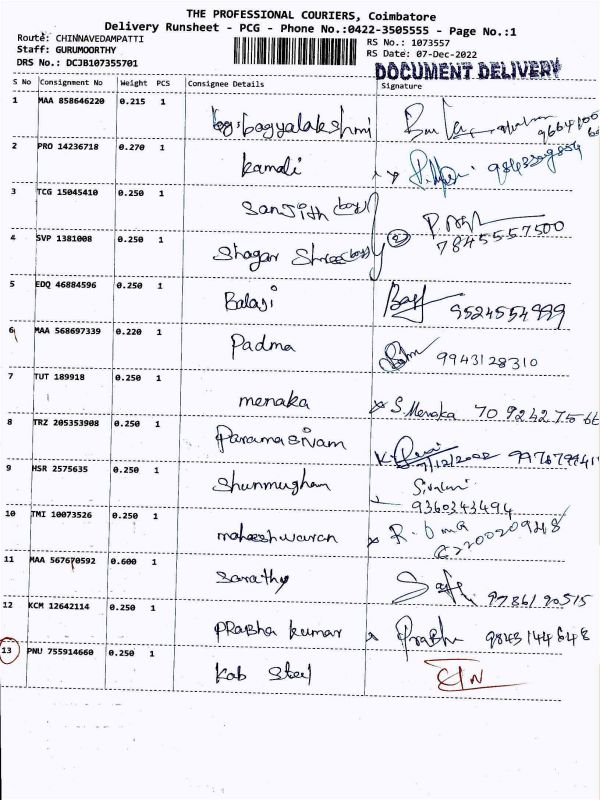 THE PROFESSIONAL COURIERS, Coimbatore
Delivery Runsheet - PCG - Phone No.:0422-3505555 - Page No.:1
Route: CHINNAVEDAMPATTI
Staff: GURUMOORTHY
DRS No.: DCJB107355701
RS No.: 1073557
RS Date: 07-Dec-2022
DOCUMENT DELIVERY
S No Consignment No Weight PCS Consignee Details Signature
1 MAA 858646220 0.215 1 bagyalakshmi
2 PRO 14236718 0.270 1 kamali
3 TCG 15045410 0.250 1 Sanjith
7845557500
4 SVP 1381008 0.250 1 Shagar Shree
5 EDQ 46884596 0.250 1 Balaji
9524554999
6 MAA 568697339 0.220 1 Padma 9943128310
7 TUT 189918 0.250 1 menaka S. Menaka
8 TRZ 205353908 0.250 1 Paramasivam
7/12/2022
9 HSR 2575635 0.250 1 Shunmugham
9360343494
10 TMI 10073526 0.250 1 maheshwaran R. Uma
11 MAA 567670592 0.600 1 Sarathy
9786190515
12 KCM 12642114 0.250 1 Prabha kumar Prabhu 9843144648
13 PNU 755914660 0.250 1 Kab Steel